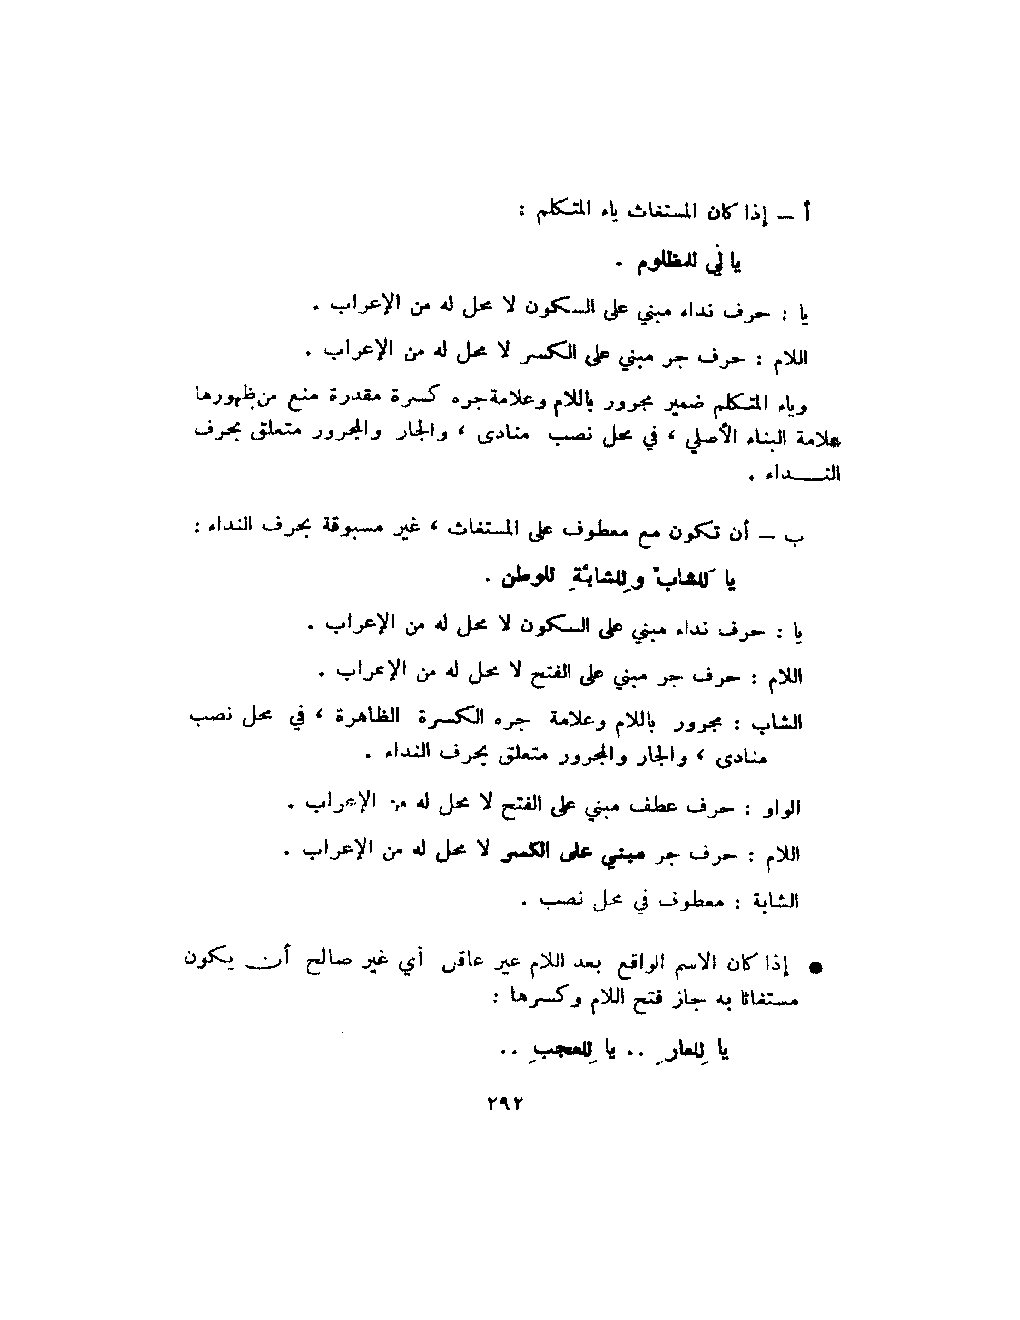 أ – إذا كان المستغاث ياء المتكلم :
يا لي للمظلوم .
يا : حرف نداء مبني على السكون لا محل له من الإعراب .
اللام : حرف جر مبني على الكسر لا محل له من الإعراب .
وياء المتكلم ضمير مجرور باللام وعلامة جره كسرة مقدرة منع من ظهورها
علامة البناء الأصلي ، في محل نصب منادى ، والجار والمجرور متعلق بحرف
النــــداء .
ب – أن تكون مع معطوف على المستغاث ، غير مسبوقة بحرف النداء :
يا لَلشاب ولِلشابةِ للوطن .
يا : حرف نداء مبني على السكون لا محل له من الإعراب .
اللام : حرف جر مبني على الفتح لا محل له من الإعراب .
الشاب : مجرور باللام وعلامة جره الكسرة الظاهرة ، في محل نصب
منادى ، والجار والمجرور متعلق بحرف النداء .
الواو : حرف عطف مبني على الفتح لا محل له من الإعراب .
اللام : حرف جر مبني على الكسر لا محل له من الإعراب .
الشابة : معطوف في محل نصب .
● إذا كان الاسم الواقع بعد اللام غير عاقل أي غير صالح أن يكون
مستغاثا به جاز فتح اللام وكسرها :
يا لِلعارِ .. يا لِلعجبِ ..
٢٩٢